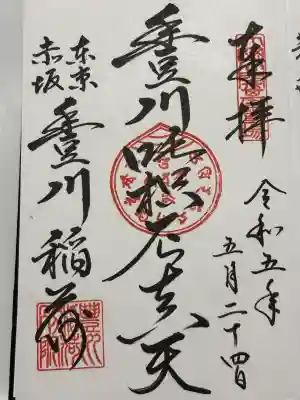 奉拝
令和五年
五月二十四日
豊川吒枳尼真天
東京
赤坂
豊川稲荷